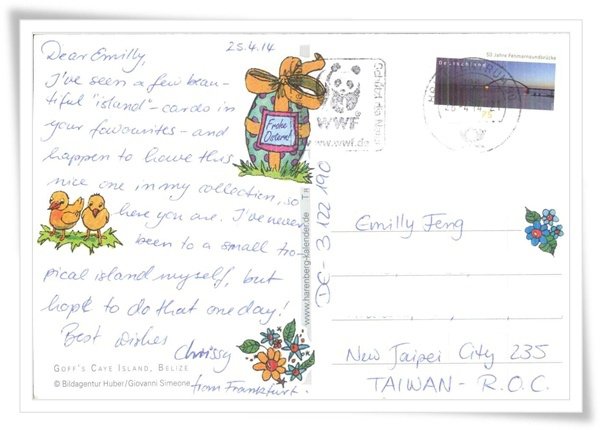 25.4.14
Dear Emilly,
I've seen a few beau-
tiful "island"-cards in
your favourites - and
happen to have this
nice one in my collection, so
here you are. I've never
been to a small tro-
pical island myself, but
hope to do that one day!
Best wishes
Chrissy
from Frankfurt.
GOFF'S CAYE ISLAND, BELIZE
© Bildagentur Huber/Giovanni Simeone
Frohe
Ostern!
WWF
www.wwf.de
50 Jahre Fehmarnsundbrücke
Deutschland
75
www.harenberg-kalender.de
DE-3122190
Emilly Feng
New Taipei City 235
TAIWAN - R.O.C.